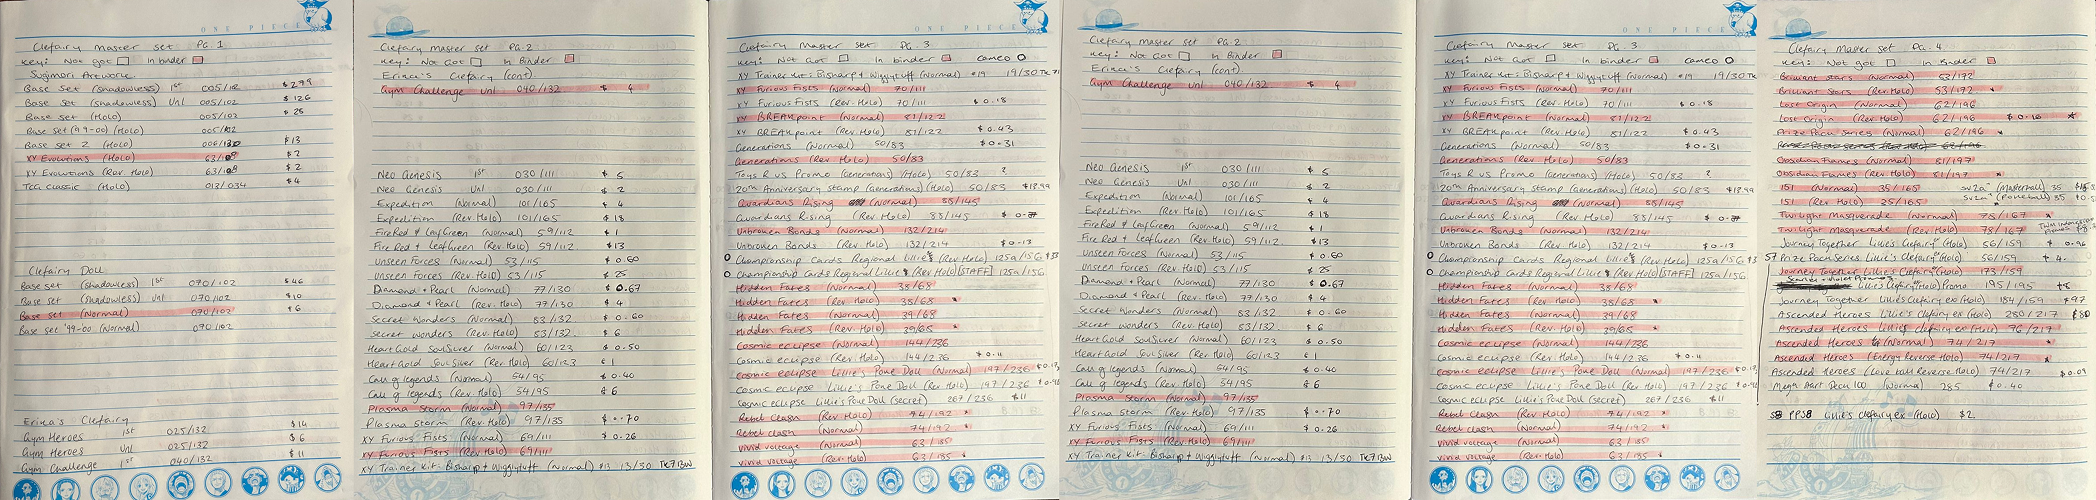 Clefairy Master Set Pg. 1
Key: Not got In binder
Sugimori Artwork
Base Set (Shadowless) 1st 005/102 $279
Base Set (Shadowless) Unl 005/102 $126
Base Set (Holo) 005/102 $28
Base Set (99-00) (Holo) 005/102
Base Set 2 (Holo) 006/130 $13
XY Evolutions (Holo) 63/108 $2
XY Evolutions (Rev. Holo) 63/108 $2
TCG Classic (Holo) 012/034 $4
Clefairy Doll
Base set (shadowless) 1st 070/102 $46
Base set (shadowless) unl 070/102 $10
Base set (Normal) 070/102 $6
Base set '99-00 (Normal) 070/102
Erika's Clefairy
Gym Heroes 1st 025/132 $14
Gym Heroes Unl 025/132 $6
Gym Challenge 1st 040/132 $11
Clefairy Master Set PG. 2
Key: Not Got In Binder
Erika's Clefairy (cont)
Gym Challenge Unl 040/132 $ 4
Neo Genesis 1st 030/111 $ 5
Neo Genesis Unl 030/111 $ 2
Expedition (Normal) 101/165 $ 4
Expedition (Rev. Holo) 101/165 $18
Fire Red & Leaf Green (Normal) 59/112 $1
Fire Red & Leaf Green (Rev. Holo) 59/112 $13
Unseen Forces (Normal) 53/115 $0.60
Unseen Forces (Rev. Holo) 53/115 $ 25
Diamond & Pearl (Normal) 77/130 $0.67
Diamond & Pearl (Rev. Holo) 77/130 $ 4
Secret Wonders (Normal) 83/132 $0.60
Secret Wonders (Rev. Holo) 83/132 $ 6
Heart Gold Soul Silver (Normal) 60/123 $0.50
Heart Gold Soul Silver (Rev. Holo) 60/123 $1
Call of legends (Normal) 54/95 $0.40
Call of legends (Rev. Holo) 54/95 $6
Plasma Storm (Normal) 97/135
Plasma Storm (Rev. Holo) 97/135 $0.70
XY Furious Fists (Normal) 69/111 $0.26
XY Furious Fists (Rev. Holo) 69/111
XY Trainer Kit: Bisharp & Wigglytuff (Normal) #13 13/30 TK7BW
ONE PIECE
Clefairy Master Set PG. 3
Key: Not Got In binder cameo
XY Trainer Kit: Bisharp & Wigglytuff (Normal) #19 19/30
XY Furious Fists (Normal) 70/111
XY Furious Fists (Rev. Holo) 70/111 $0.18
XY BREAKpoint (Normal) 81/122
XY BREAKpoint (Rev. Holo) 81/122 $0.43
Generations (Normal) 50/83 $0.31
Generations (Rev Holo) 50/83
Toys R us Promo (Generations) (Holo) 50/83 ?
20th Anniversary Stamp (Generations) (Holo) 50/83 $18.99
Guardians Rising (Normal) 88/145
Guardians Rising (Rev. Holo) 88/145
Unbroken Bonds (Normal) 132/214
Unbroken Bonds (Rev. Holo) 132/214 $0.13
Championship Cards Regional Lillie's (Rev. Holo) 125a/156
Championship Cards Regional Lillie's (Rev Holo) [STAFF] 125a/156
Hidden Fates (Normal) 38/68
Hidden Fates (Rev. Holo) 38/68
Hidden Fates (Normal) 39/68
Hidden Fates (Rev. Holo) 39/68
Cosmic eclipse (Normal) 144/236
Cosmic eclipse (Rev. Holo) 144/236
Cosmic eclipse Lillie's Poké Doll (Normal) 197/236
Cosmic eclipse Lillie's Poké Doll (Rev. Holo) 197/236
Cosmic eclipse Lillie's Poké Doll (secret) 267/236 $11
Rebel Clash (Rev. Holo) 74/192
Rebel clash (Normal) 74/192
Vivid voltage (Normal) 63/185
Vivid voltage (Rev. Holo) 63/185
Clefairy Master Set PG. 2
Key: Not Got In Binder
Erika's Clefairy (cont)
Gym Challenge Unl 040/132 $ 4
Neo Genesis 1st 030/111 $ 5
Neo Genesis Unl 030/111 $ 2
Expedition (Normal) 101/165 $ 4
Expedition (Rev. Holo) 101/165 $18
Fire Red & Leaf Green (Normal) 59/112 $1
Fire Red & Leaf Green (Rev. Holo) 59/112 $13
Unseen Forces (Normal) 53/115 $0.60
Unseen Forces (Rev. Holo) 53/115 $ 25
Diamond & Pearl (Normal) 77/130 $0.67
Diamond & Pearl (Rev. Holo) 77/130 $ 4
Secret Wonders (Normal) 83/132 $0.60
Secret Wonders (Rev. Holo) 83/132 $ 6
Heart Gold Soul Silver (Normal) 60/123 $0.50
Heart Gold Soul Silver (Rev. Holo) 60/123 $1
Call of legends (Normal) 54/95 $0.40
Call of legends (Rev. Holo) 54/95 $6
Plasma Storm (Normal) 97/135
Plasma Storm (Rev. Holo) 97/135 $0.70
XY Furious Fists (Normal) 69/111 $0.26
XY Furious Fists (Rev. Holo) 69/111
XY Trainer Kit: Bisharp & Wigglytuff (Normal) #13 13/30 TK7BW
ONE PIECE
Clefairy Master Set PG. 3
Key: Not Got In binder cameo
XY Trainer Kit: Bisharp & Wigglytuff (Normal) #19 19/30
XY Furious Fists (Normal) 70/111
XY Furious Fists (Rev. Holo) 70/111 $0.18
XY BREAKpoint (Normal) 81/122
XY BREAKpoint (Rev. Holo) 81/122 $0.43
Generations (Normal) 50/83 $0.31
Generations (Rev Holo) 50/83
Toys R us Promo (Generations) (Holo) 50/83 ?
20th Anniversary Stamp (Generations) (Holo) 50/83 $18.99
Guardians Rising (Normal) 88/145
Guardians Rising (Rev. Holo) 88/145
Unbroken Bonds (Normal) 132/214
Unbroken Bonds (Rev. Holo) 132/214 $0.13
Championship Cards Regional Lillie's (Rev. Holo) 125a/156
Championship Cards Regional Lillie's (Rev Holo) [STAFF] 125a/156
Hidden Fates (Normal) 38/68
Hidden Fates (Rev. Holo) 38/68
Hidden Fates (Normal) 39/68
Hidden Fates (Rev. Holo) 39/68
Cosmic eclipse (Normal) 144/236
Cosmic eclipse (Rev. Holo) 144/236
Cosmic eclipse Lillie's Poké Doll (Normal) 197/236
Cosmic eclipse Lillie's Poké Doll (Rev. Holo) 197/236
Cosmic eclipse Lillie's Poké Doll (secret) 267/236 $11
Rebel Clash (Rev. Holo) 74/192
Rebel clash (Normal) 74/192
Vivid voltage (Normal) 63/185
Vivid voltage (Rev. Holo) 63/185
ONE PIECE
Clefairy Master Set PG. 4
Key: Not got In Binder
Brilliant Stars (Normal) 53/172
Brilliant Stars (Rev Holo) 53/172
Lost Origin (Normal) 62/196
Lost Origin (Rev Holo) 62/196 $0.16
Prize Pack Series (Normal) 62/196
Obsidian Flames (Normal) 81/197
Obsidian Flames (Rev Holo) 81/197
151 (Normal) 35/165 sv2a (Masterball) 35
151 (Rev. Holo) 35/165 sv2a (Pokeball) 35
Twilight Masquerade (Normal) 78/167
Twilight Masquerade (Rev. Holo) 78/167
Journey Together Lillie's Clefairy (Holo) 56/159 $0.96
S7 Prize Pack Series Lillie's Clefairy (Holo) 56/159 $ 4
Journey Together Lillie's Clefairy (Holo) 173/159
Lillie's Clefairy (Holo) Promo 195/195 $8
Journey Together Lillie's Clefairy ex (Holo) 184/159 $97
Ascended Heroes Lillie's Clefairy ex (Holo) 280/217 $80
Ascended Heroes Lillie's Clefairy ex (Holo) 76/217
Ascended Heroes (Normal) 74/217
Ascended Heroes (Energy Reverse Holo) 74/217
Ascended Heroes (Love ball Reverse Holo) 74/217 $0.09
Mega Start Deck 100 (Normal) 285 $0.40
S8 PPS8 Lillie's Clefairy ex (Holo) $2